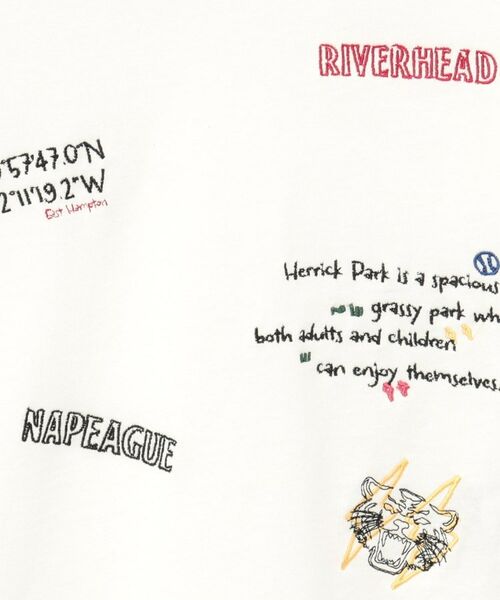 RIVERHEAD
°57'47.0"N
2°11'19.2"W
East Hampton
Herrick Park is a spacious
grassy park wh
both adults and children
can enjoy themselves.
NAPEAGUE